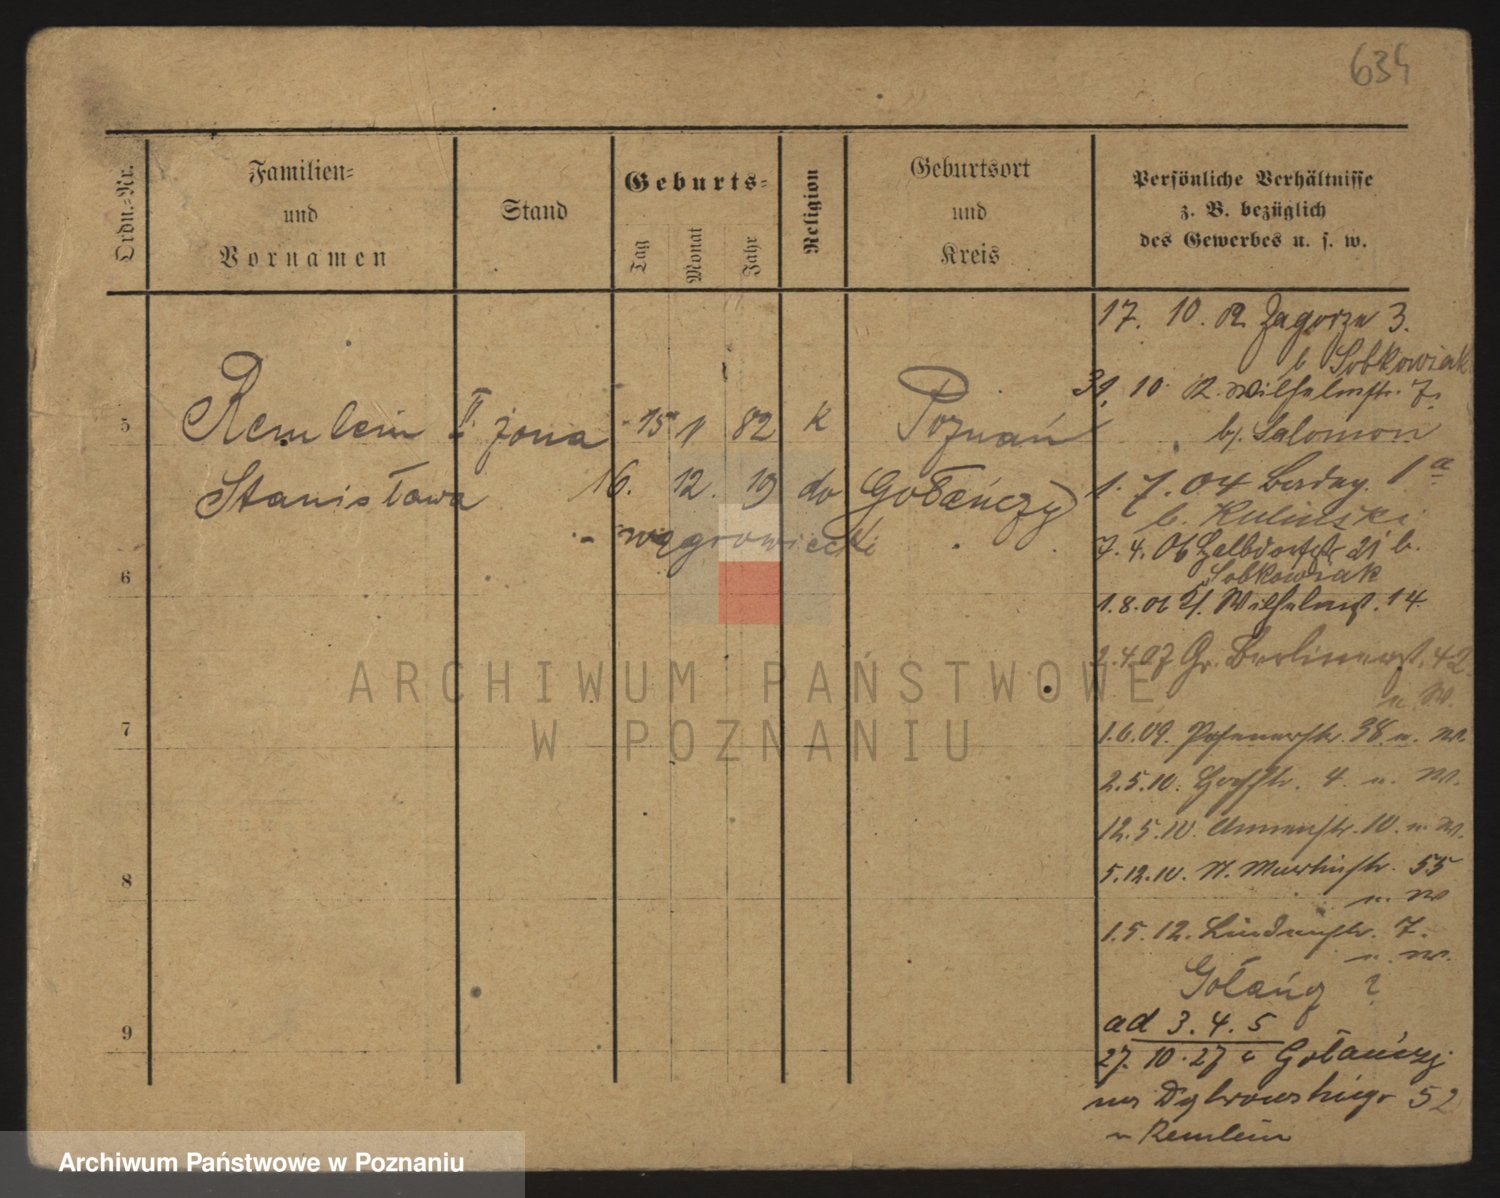 634
Ordn.-Nr.
Familien-
und
Vornamen
Stand
Geburts-
Tag
Monat
Jahr
Religion
Geburtsort
und
Kreis
Persönliche Verhältnisse
z. B. bezüglich
des Gewerbes u. s. w.
17. 10. R. Zagorze 3.
b Sobkowiak
31. 10 R. Wilhelmstr. 7.
b/. Salomon
5 Remlein II żona 15 1 82 K Poznań
Stanisława 16. 12. 19 do Gołańczy
wągrowiecki
1. 7. 04 1a
b. Kulinski
7. 4. 06 21 b.
Sobkowiak
6
1. 8. 06 Wilhelmst. 14
2. 4. 07 Gr. Berlinerst. 42
u. W.
7
1. 6. 09. Posenerstr. 38 u. W.
2. 5. 10. 4 u. W.
12. 5. 10. Annenstr. 10. u. W.
8
5. 12. 10. St. Martinstr. 55
u. W
1. 5. 12. Lindenstr. 7.
u. W.
Gołańcz ?
9
ad 3. 4. 5
27. 10. 27 Gołańczy
Dąbrowskiego 52
u Remlein
ARCHIWUM PAŃSTWOWE
W POZNANIU
Archiwum Państwowe w Poznaniu